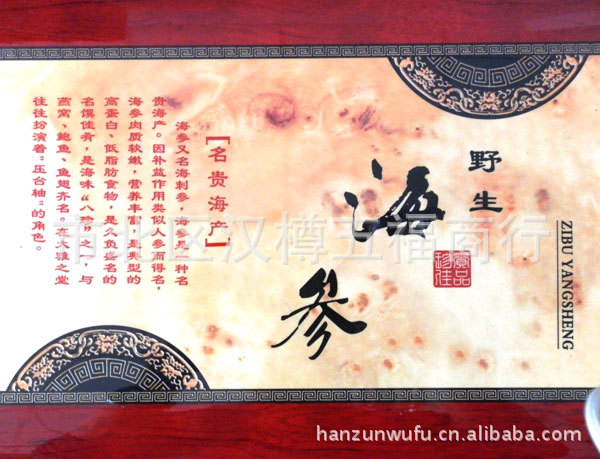 野生
海参
ZIBU YANGSHENG
[名贵海产]
海参又名海刺参，海参是一种名
贵海产。因补益作用类似人参而得名，
海参肉质软嫩，营养丰富，是典型的
高蛋白、低脂肪食物，是久负盛名的
名馔佳肴，是海味“八珍”之一，与
燕窝、鲍鱼、鱼翅齐名。在大雅之堂
往往扮演着“压台轴”的角色。
市北区汉樽五福商行
hanzunwufu.cn.alibaba.com